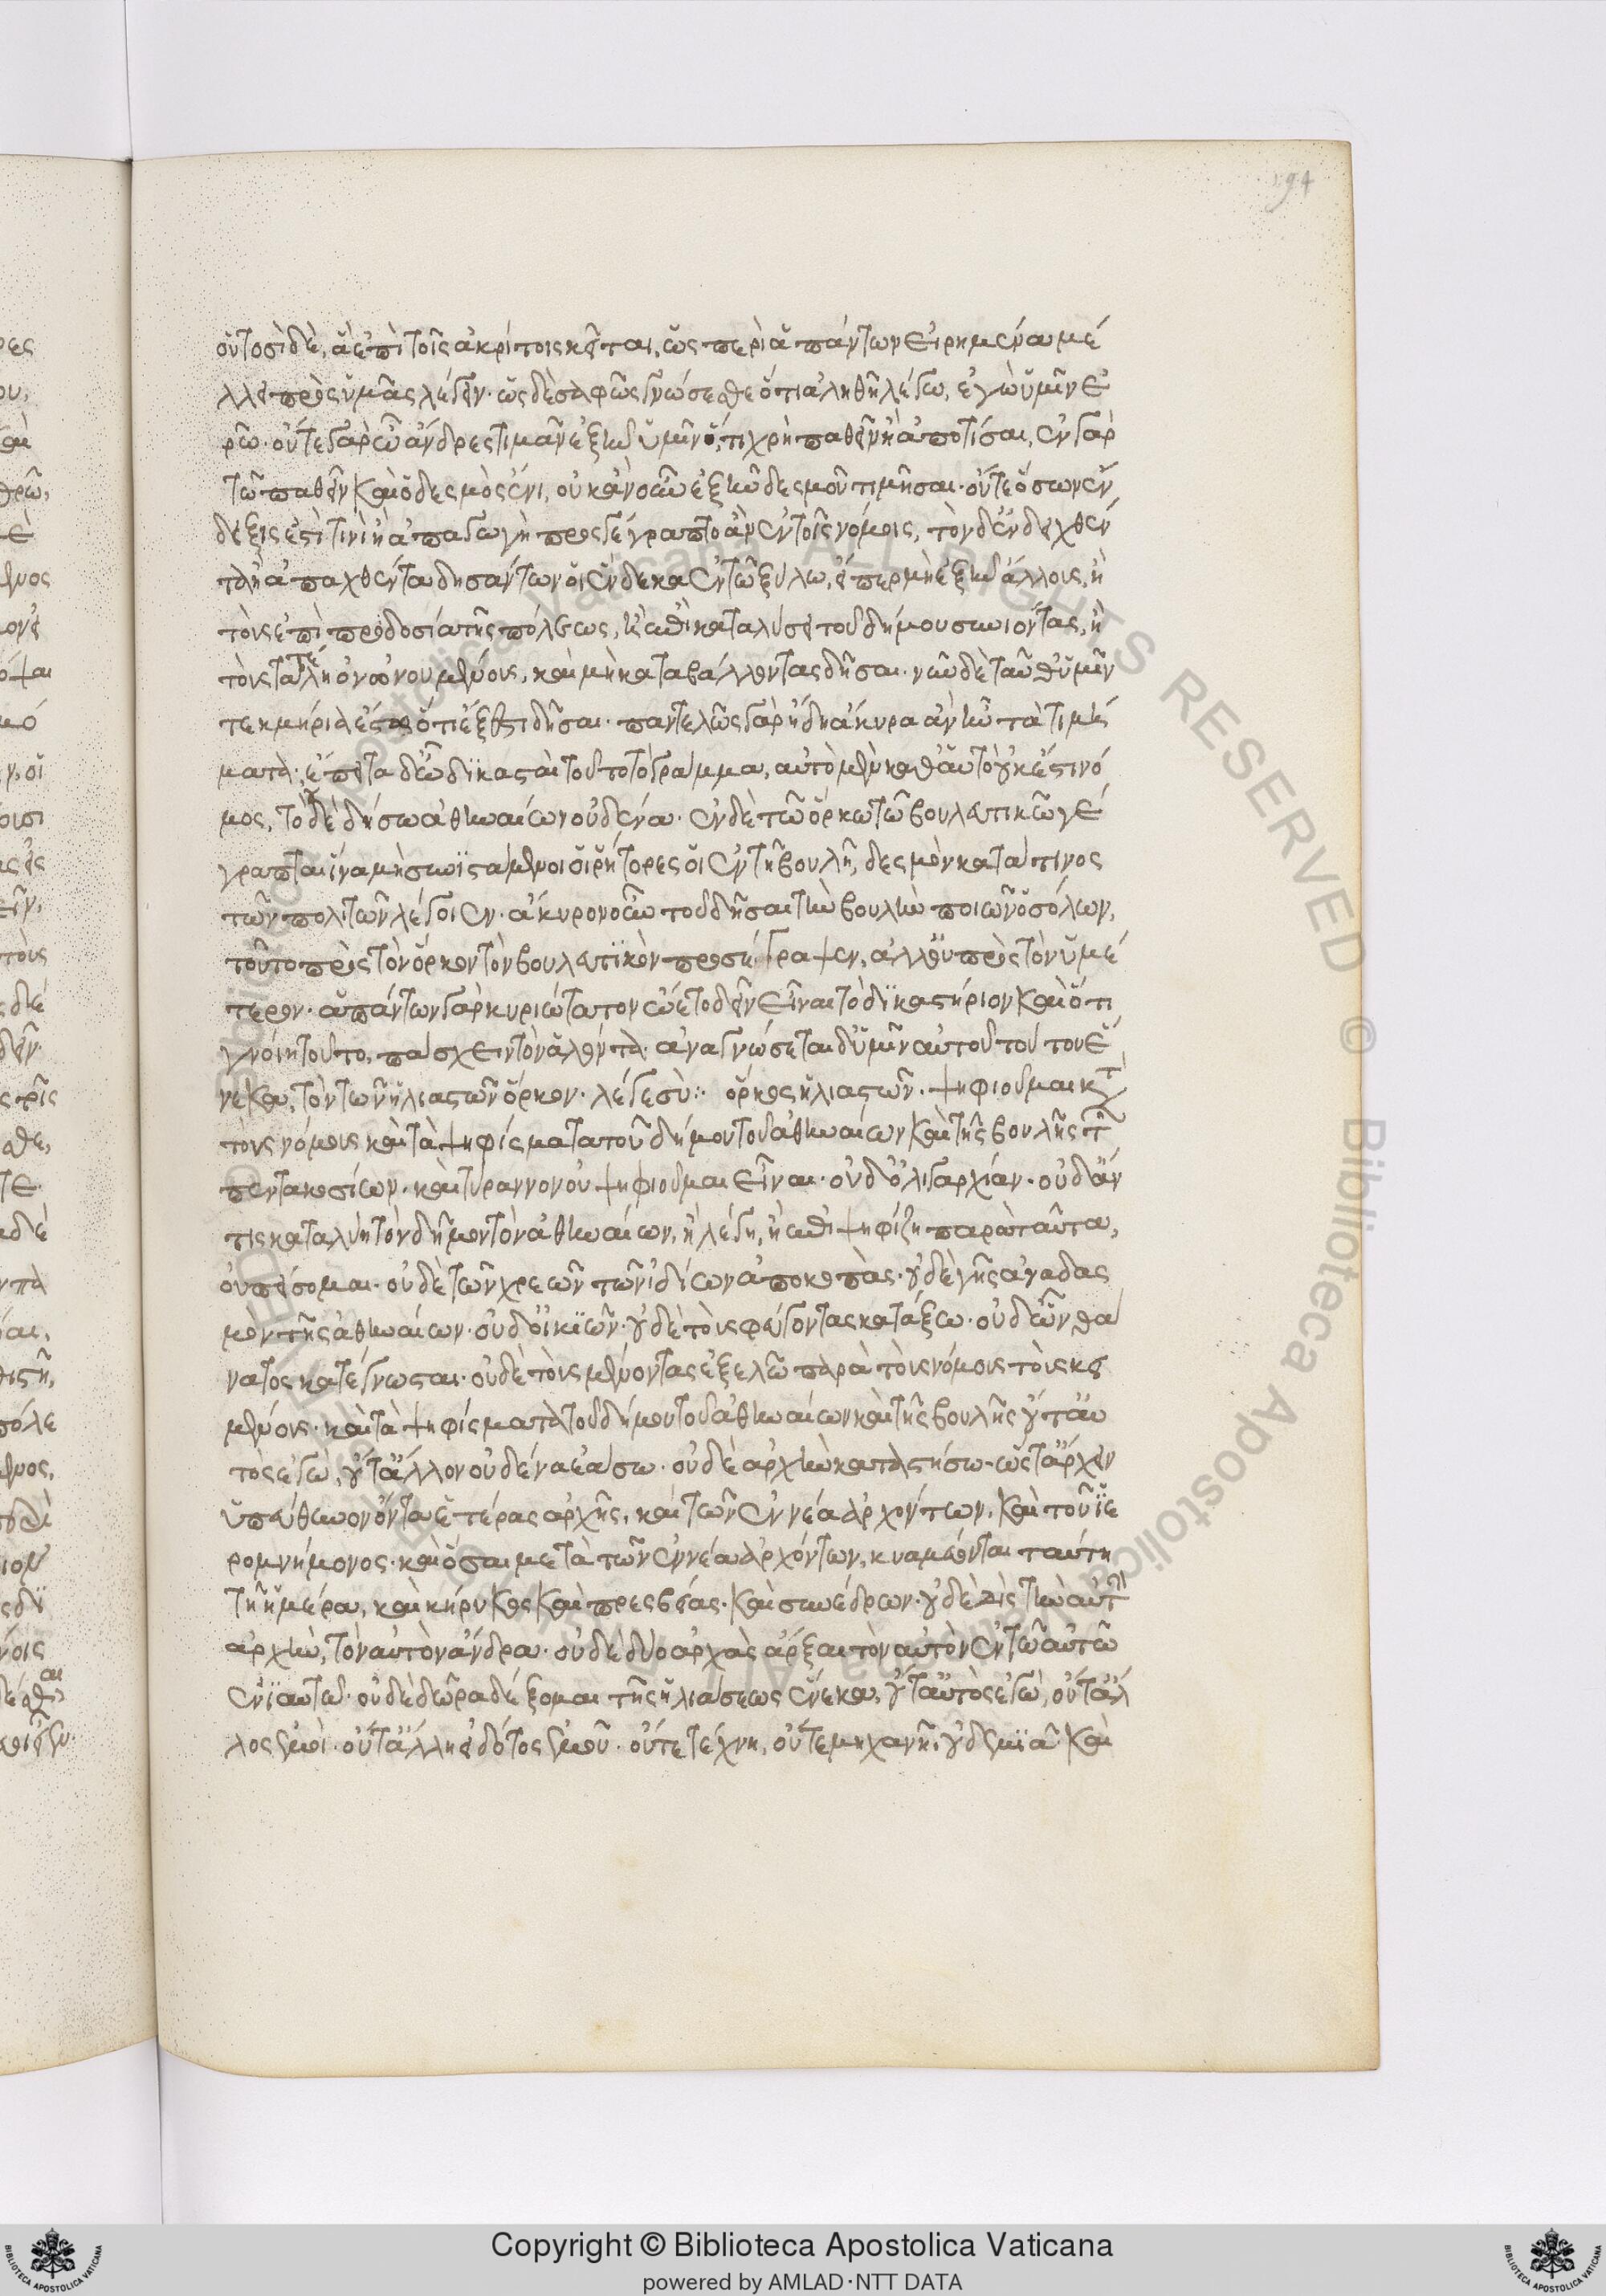 194
οὑτοσὶ δὲ, ἃ ἐπὶ τοῖς ἀκρίτοις κεῖται, ὡς περὶ ἁπάντων εἰρημένα μέ
λλει πρὸς ὑμᾶς λέγειν. ὡς δὲ σαφῶς γνώσεσθε ὅτι ἀληθῆ λέγω, ἐγὼ ὑμῖν ἐ
ρῶ. οὔτε γὰρ ὦ ἄνδρες τιμᾶν ἐξῆν ὑμῖν ὅ,τι χρὴ παθεῖν ἢ ἀποτίσαι, ἐν γὰρ
τῷ παθεῖν καὶ ὁ δεσμὸς ἔνι, οὐκ ἂν οὖν ἐξῆν δεσμοῦ τιμῆσαι. οὔτε ὅσων ἔν
δειξις ἐστί τινι ἢ ἀπαγωγὴ προσγέγραπτο ἂν ἐν τοῖς νόμοις, τὸν δ' ἐνδειχθέν
τα ἢ ἀπαχθέντα δησάντων οἱ ἕνδεκα ἐν τῷ ξύλῳ, εἴπερ μὴ ἐξῆν ἄλλους, ἢ
τοὺς ἐπὶ προδοσία τῆς πόλεως, ἢ ἐπὶ καταλύσει τοῦ δήμου συνιόντας, ἢ
τοὺς τὰ τέλη ὠνουμένους, καὶ μὴ καταβάλλοντας δῆσαι. νῦν δὲ ταῦθ' ὑμῖν
τεκμήρια ἔστω ὅτι ἔξεστι δῆσαι. παντελῶς γὰρ ἤδη ἄκυρα ἂν ἦν τὰ τιμή
ματα. ἔπειτα δ' ὦ δικασταὶ τοῦτο τὸ γράμμα, αὐτὸ μὲν καθ' αὑτὸ οὐκ ἔστι νό
μος, τὸ δὲ δήσω ἀθηναίων οὐδένα. ἐν δὲ τῷ ὅρκῳ τῷ βουλευτικῷ γέ
γραπται ἵνα μὴ συνιστάμενοι οἱ ῥήτορες οἱ ἐν τῇ βουλῇ, δεσμὸν κατά τινος
τῶν πολιτῶν λέγοιεν. ἄκυρον οὖν τοῦ δῆσαι τὴν βουλὴν ποιῶν ὁ σόλων,
τοῦτο πρὸς τὸν ὅρκον τὸν βουλευτικὸν προσέγραψεν, ἀλλ' οὐ πρὸς τὸν ὑμέ
τερον. ἁπάντων γὰρ κυριώτατον ᾤετο δεῖν εἶναι τὸ δικαστήριον καὶ ὅτι
γνοίη τοῦτο, πάσχειν τὸν ἁλόντα. ἀναγνώσεται δ' ὑμῖν αὐτοῦ τούτου ἕ
νεκα, τὸν τῶν ἡλιαστῶν ὅρκον. λέγε σύ:· ὅρκος ἡλιαστῶν. ψηφιοῦμαι κατὰ
τοὺς νόμους καὶ τὰ ψηφίσματα τοῦ δήμου τοῦ ἀθηναίων καὶ τῆς βουλῆς τῶν
πεντακοσίων. καὶ τύραννον οὐ ψηφιοῦμαι εἶναι. οὐδ' ὀλιγαρχίαν. οὐδ' ἄν
τις καταλύῃ τὸν δῆμον τὸν ἀθηναίων, ἢ λέγῃ, ἢ ἐπιψηφίζῃ παρὰ ταῦτα,
οὐ πείσομαι. οὐδὲ τῶν χρεῶν τῶν ἰδίων ἀποκοπὰς. οὐδὲ γῆς ἀναδασ
μὸν τῆς ἀθηναίων. οὐδ' οἰκιῶν. οὐδὲ τοὺς φεύγοντας κατάξω. οὐδ' ὧν θά
νατος κατέγνωσται. οὐδὲ τοὺς μένοντας ἐξελῶ παρὰ τοὺς νόμους τοὺς κει
μένους. καὶ τὰ ψηφίσματα τοῦ δήμου τοῦ ἀθηναίων καὶ τῆς βουλῆς οὔτ' αὐ
τὸς ἐγὼ, οὔτ' ἄλλον οὐδένα ἐάσω. οὐδὲ ἀρχὴν καταστήσω. ὥστ' ἄρχειν
ὑπεύθυνον ὄντα ἑτέρας ἀρχῆς, καὶ τῶν ἐννέα ἀρχόντων, καὶ τοῦ ἱε
ρομνήμονος. καὶ ὅσαι μετὰ τῶν ἐννέα ἀρχόντων, κυαμεύονται ταύτῃ
τῇ ἡμέρα, καὶ κήρυκος καὶ πρεσβείας. καὶ συνέδρων. οὐδὲ δὶς τὴν αὐτὴν
ἀρχὴν, τὸν αὐτὸν ἄνδρα. οὐδὲ δύο ἀρχὰς ἄρξαι τὸν αὐτὸν ἐν τῷ αὐτῷ
ἐνιαυτῷ. οὐδὲ δῶρα δέξομαι τῆς ἡλιάσεως ἕνεκα, οὔτ' αὐτὸς ἐγὼ, οὔτ' ἄλ
λος ἐμοὶ. οὔτ' ἄλλη εἰδότος ἐμοῦ. οὔτε τέχνῃ, οὔτε μηχανῇ οὐδεμιᾷ καὶ
Copyright © Biblioteca Apostolica Vaticana
powered by AMLAD·NTT DATA